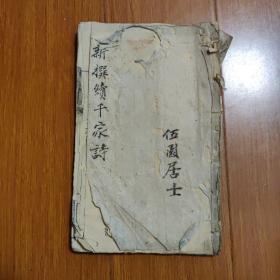 新撰續千家詩
伍園居士